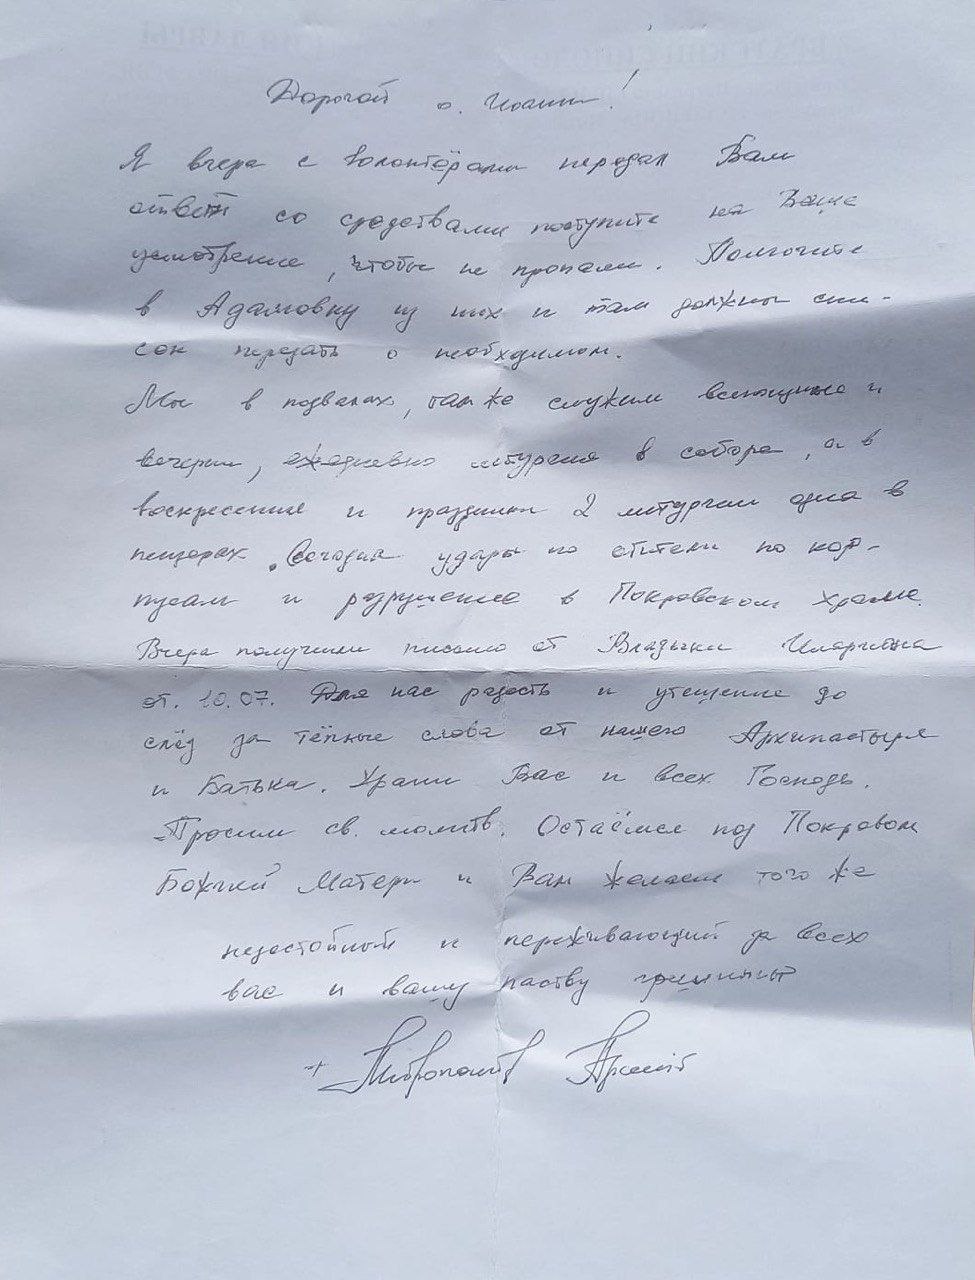 Дорогой о. Иоанн!
Я вчера с волонтёрами передал Вам
ответ со средствами поступите на Ваше
усмотрение, чтобы не пропали. Помогите
в Адамовку из них и там должны спи-
сок передать о необходимом.
Мы в подвалах, там же служим всенощные и
вечерни, ежедневно литургия в соборе, а в
воскресение и праздники 2 литургии одна в
пещерах. Сегодня удары по обители по кор-
пусам и разрушение в Покровском храме.
Вчера получили письмо от Владыки Илариона
от. 10.07. Для нас радость и утешение до
слёз за тёплые слова от нашего Архипастыря
и Батька. Храни Вас и всех Господь.
Просим св. молитв. Остаёмся под Покровом
Божией Матери и Вам желаем того же
недостойный и переживающий за всех
вас и вашу паству грешный
+ Митрополит Арсений